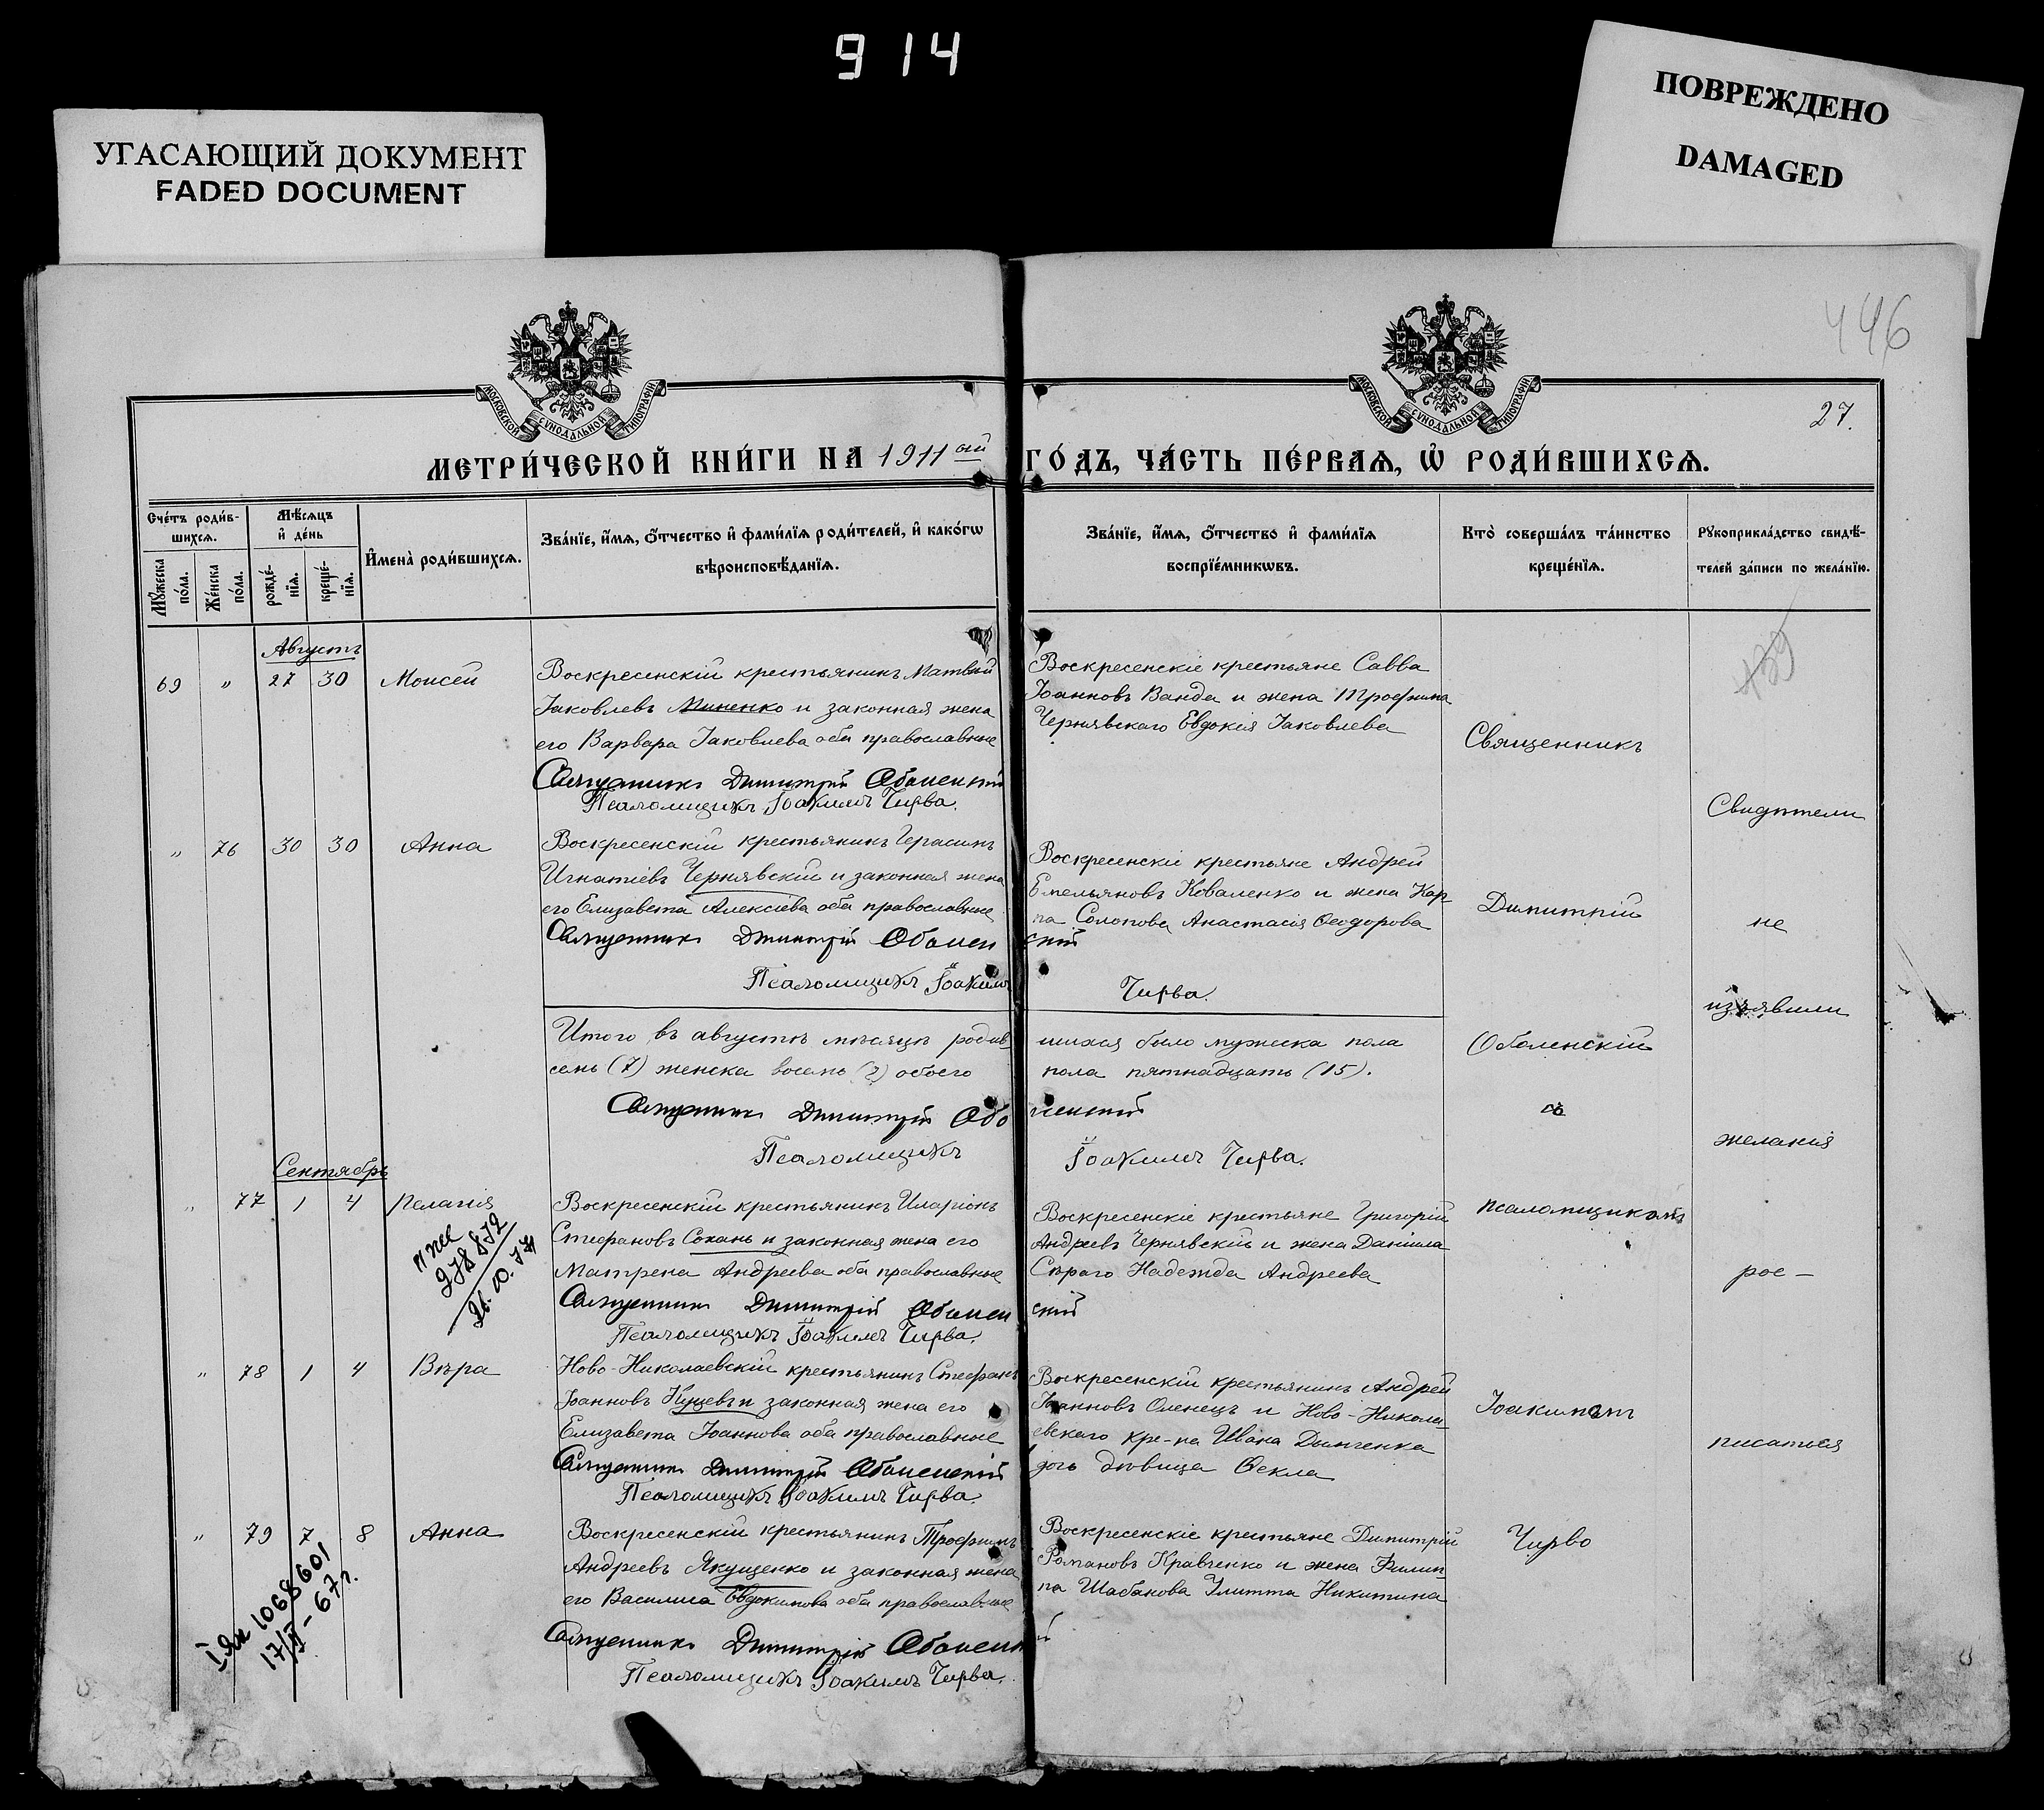 914
УГАСАЮЩИЙ ДОКУМЕНТ
FADED DOCUMENT
ПОВРЕЖДЕНО
DAMAGED
446
27.
МОСКОВСКОЙ СѴНОДАЛЬНОЙ ТИПОГРАФІИ
МОСКОВСКОЙ СѴНОДАЛЬНОЙ ТИПОГРАФІИ
МЕТРИ́ЧЕСКОЙ КНИ́ГИ НА 1911ый ГО́ДЪ, ЧА́СТЬ ПЕ́РВАѦ, Ѡ҆ РОДИ́ВШИХСѦ.
Сче́тъ роди́в-
шихсѧ.
Мꙋ́жеска
по́ла.
Же́нска
по́ла.
Мѣ́сѧцъ
и҆ де́нь
рожде́-
нїѧ.
креще́-
нїѧ.
И҆мена̀ роди́вшихсѧ.
Зва́нїе, и҆́мѧ, ѻ҆́тчество и҆ фамѝлїѧ роди́телей, и҆ како́гѡ
вѣроисповѣ́данїѧ.
Зва́нїе, и҆́мѧ, ѻ҆́тчество и҆ фами́лїѧ
воспрїе́мникѡвъ.
Кто̀ соверша́лъ та́инство
креще́нїѧ.
Рꙋкоприкла́дство свидѣ́-
телей за́писи по жела́нїю.
Августъ
69 " 27 30 Моисей
Воскресенскій крестьянинъ Матвѣй
Іаковлевъ Миненко и законная жена
его Варвара Іаковлева оба православные
Священникъ Димитрій Оболенскій
Псаломщикъ Іоакимъ Чирва.
Воскресенскіе крестьяне Савва
Іоанновъ Ванда и жена Трофима
Чернявскаго Евдокія Іаковлева
" 76 30 30 Анна
Воскресенскій крестьянинъ Герасимъ
Игнатіевъ Чернявскій и законная жена
его Елизавета Алексіева оба православные
Священникъ Димитрій Оболенскій
Псаломщикъ Іоакимъ Чирва.
Воскресенскіе крестьяне Андрей
Емельяновъ Коваленко и жена Кар
па Солопова Анастасія Ѳеодорова
Итого въ августѣ мѣсяцѣ родившихся было мужеска пола
семь (7) женска восемь (8) обоего пола пятнадцать (15).
Священникъ Димитрій Оболенскій
Псаломщикъ Іоакимъ Чирва.
Сентябрь
" 77 1 4 Пелагія
Воскресенскій крестьянинъ Иларіонъ
Стефановъ Сохань и законная жена его
Матрена Андреева оба православные
Священникъ Димитрій Оболенскій
Псаломщикъ Іоакимъ Чирва.
Воскресенскіе крестьяне Григорій
Андреевъ Чернявскій и жена Даніила
Сѣраго Надежда Андреева
" 78 1 4 Вѣра
Ново-Николаевскій крестьянинъ Стефанъ
Іоанновъ Куцевъ и законная жена его
Елизавета Іоаннова оба православные
Священникъ Димитрій Оболенскій
Псаломщикъ Іоакимъ Чирва.
Воскресенскій крестьянинъ Андрей
Іоанновъ Оленецъ и Ново-Никола
евскаго кре-на Ивана Дымченка
дочь дѣвица Ѳекла
" 79 7 8 Анна
1068601
67г.
Воскресенскій крестьянинъ Трофимъ
Андреевъ Якущенко и законная жена
его Василиса Евдокимова оба православные
Священникъ Димитрій Оболенскій
Псаломщикъ Іоакимъ Чирва.
Воскресенскіе крестьяне Димитрій
Романовъ Кравченко и жена Филип-
па Шабанова Улитта Никитина
Священникъ
Димитрій
Оболенскій
съ
псаломщикомъ
Іоакимомъ
Чирво
Свидѣтели
не
изъявили
желанія
рос-
писаться